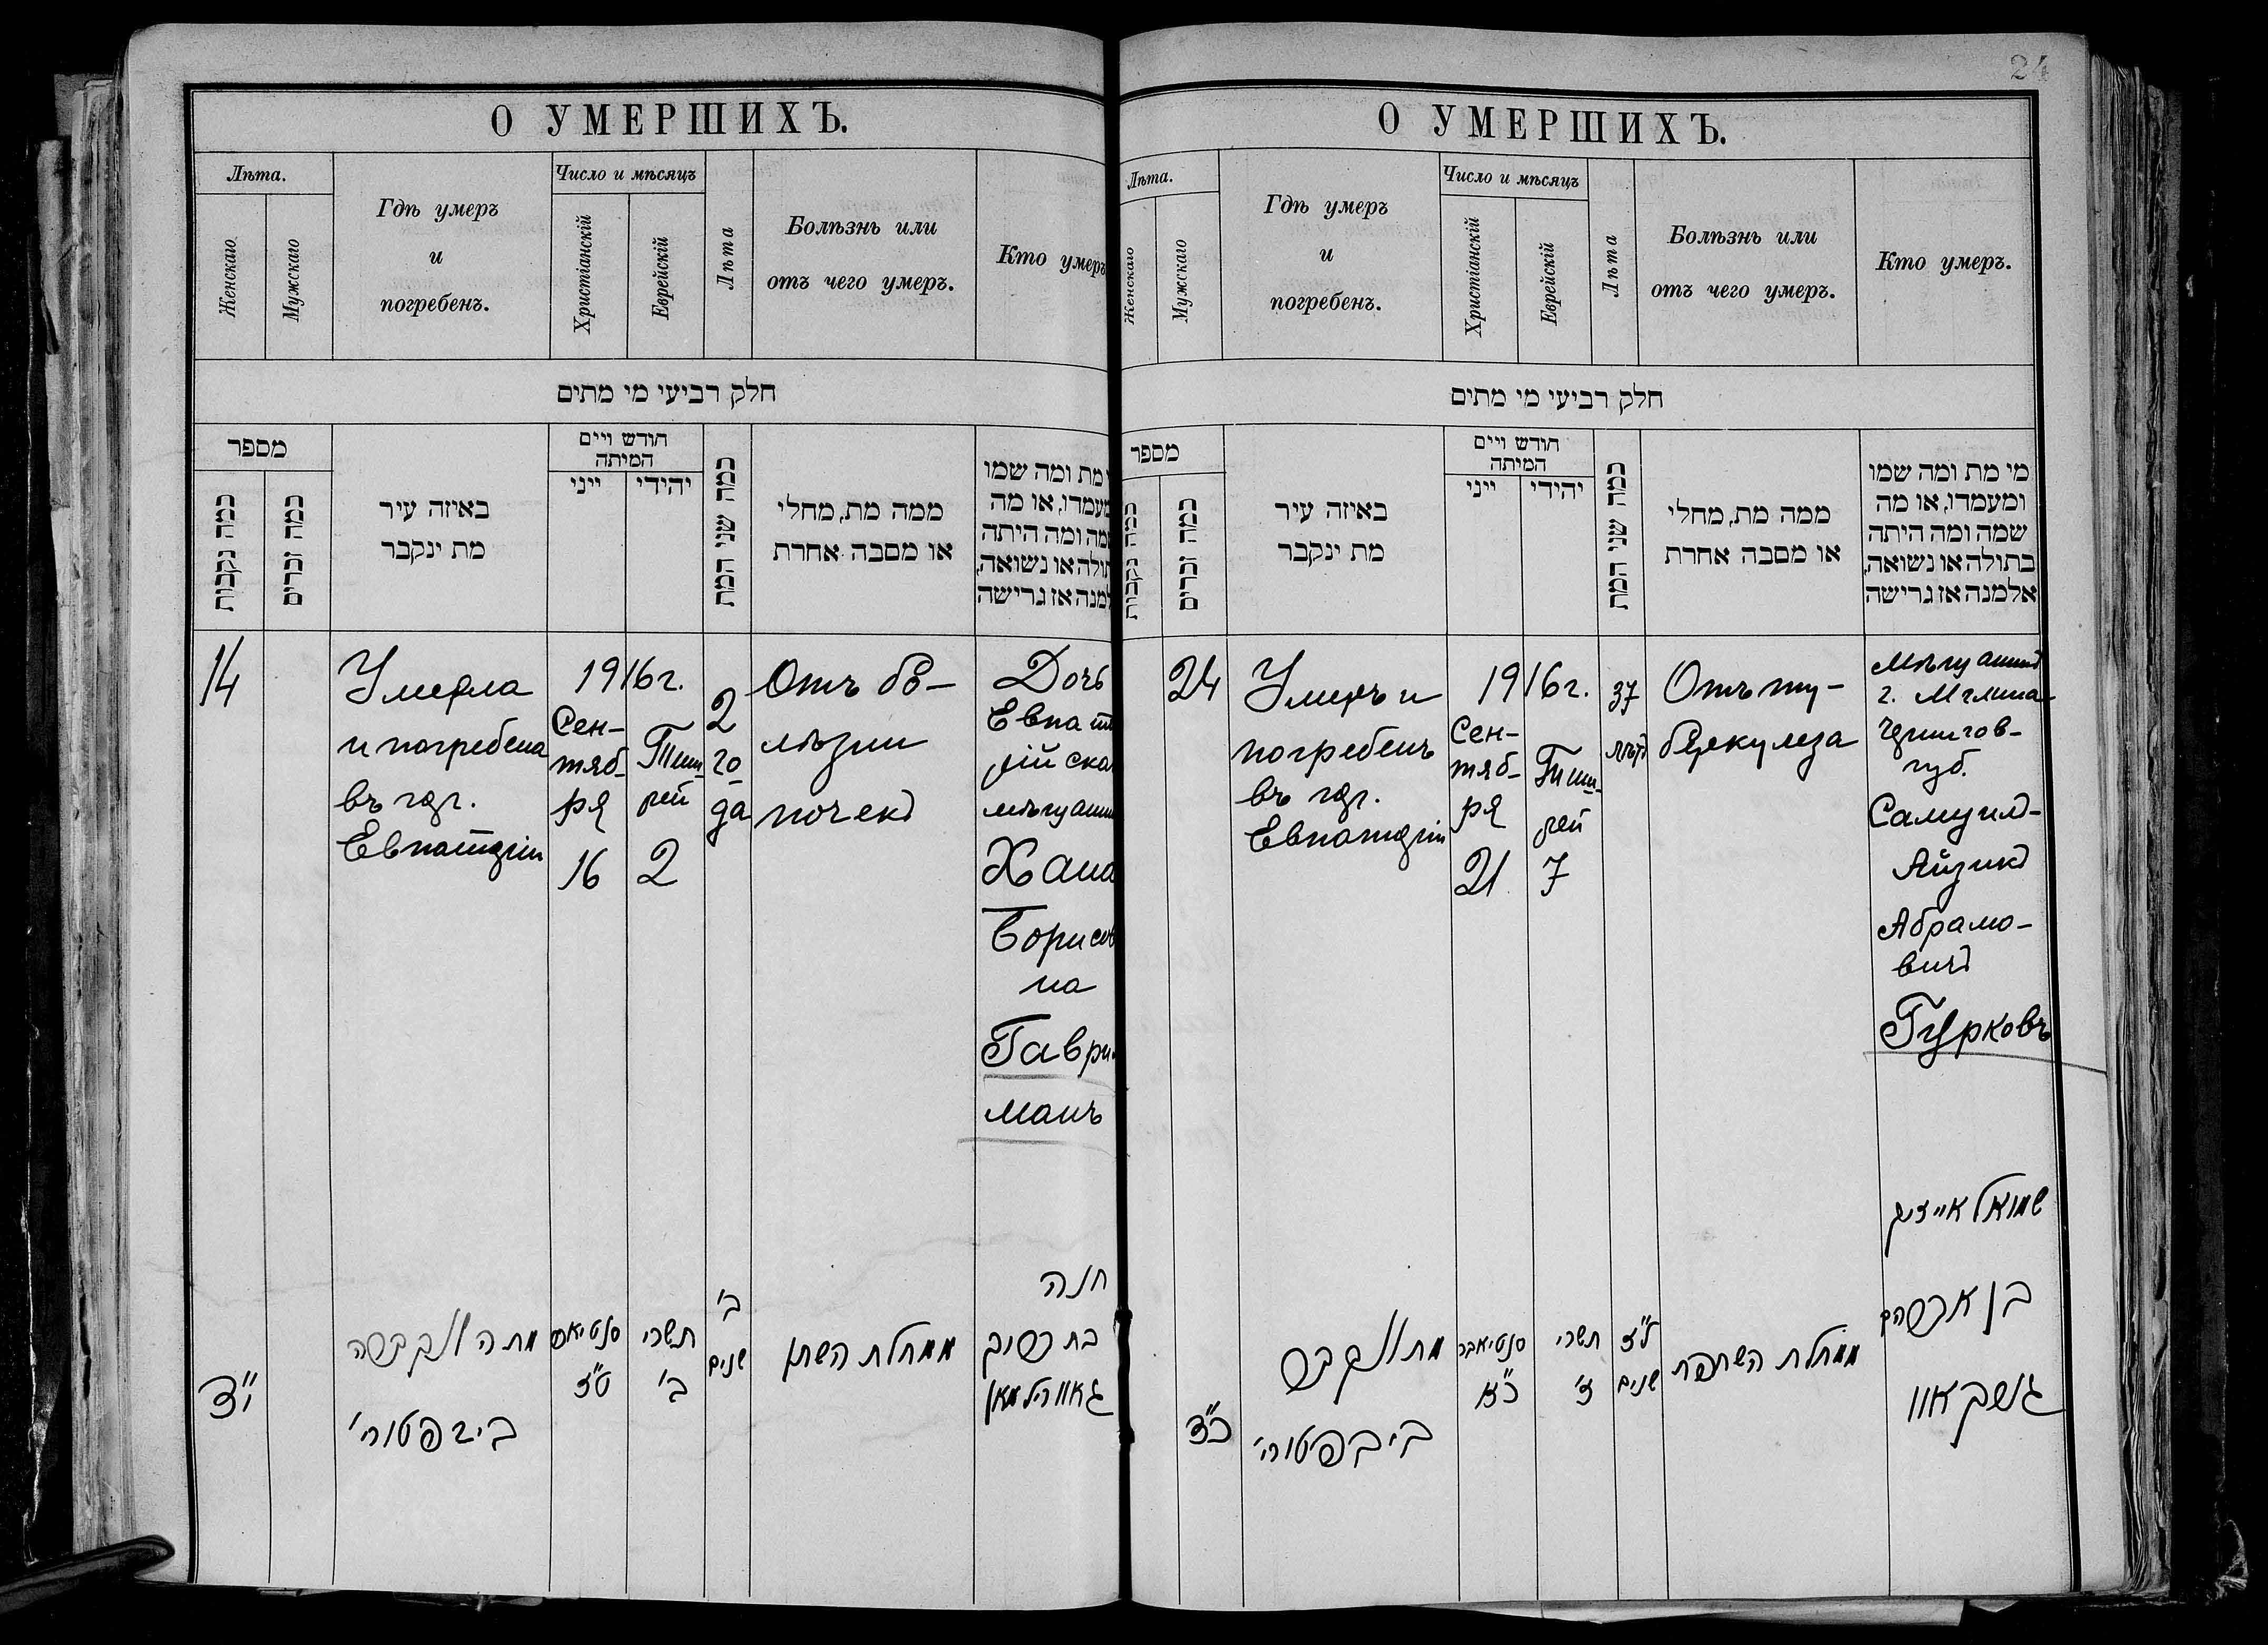 О УМЕРШИХЪ.
Лѣта.
Женскаго
Мужскаго
Гдѣ умеръ
и
погребенъ.
Число и мѣсяцъ
Христіанскій
Еврейскій
Лѣта
Болѣзнь или
отъ чего умеръ.
Кто умеръ
חלק רביעי מי מתים
מספר
כמה נקבות
כמה זכרים
באיזה עיר
מת ינקבר
חודש ויים
המיתה
ייני
יהידי
כמה שני המת
ממה מת, מחלי
או מסבה אחרת
מת ומה שמו
מעמדו, או מה
מה ומה היתה
תולה או נשואה,
למנה אז גרישה
14
Умерла
и погребена
въ гор.
Евпаторіи
1916 г.
Сен-
тяб-
ря
16
Тиш-
рей
2
2
го-
да
Отъ бо-
лѣзни
почекъ
Дочь
Евпат
рійска
мѣщанин
Хана
Борисов
на
Гаври
манъ
י"ד
מתה ונקברה
סנטיאבר
ט"ז
תשרי
ב'
ב'
שנים
ממחלת השתן
חנה
בת
גאוורילמאן
24
О УМЕРШИХЪ.
Лѣта.
Женскаго
Мужскаго
Гдѣ умеръ
и
погребенъ.
Число и мѣсяцъ
Христіанскій
Еврейскій
Лѣта
Болѣзнь или
отъ чего умеръ.
Кто умеръ.
חלק רביעי מי מתים
מספר
כמה נקבות
כמה זכרים
באיזה עיר
מת ינקבר
חודש ויים
המיתה
ייני
יהידי
כמה שני המת
ממה מת, מחלי
או מסבה אחרת
מי מת ומה שמו
ומעמדו, או מה
שמה ומה היתה
בתולה או נשואה,
אלמנה אז גרישה
24
Умеръ и
погребенъ
въ гор.
Евпаторіи
1916 г.
Сен-
тяб-
ря
21
Тиш-
рей
7
37
лѣтъ
Отъ ту-
беркулеза
Мѣщанинъ
г. Мглина
Чернигов-
губ.
Самуилъ-
Айзикъ
Абрамо-
вичъ
Гурковъ
כ"ד
מת ונקבר
סנטיאבר
כ"א
תשרי
ז'
ל"ז
שנים
ממחלת השחפת
שמואל אייזיק
בן אברהם
גורקאוו